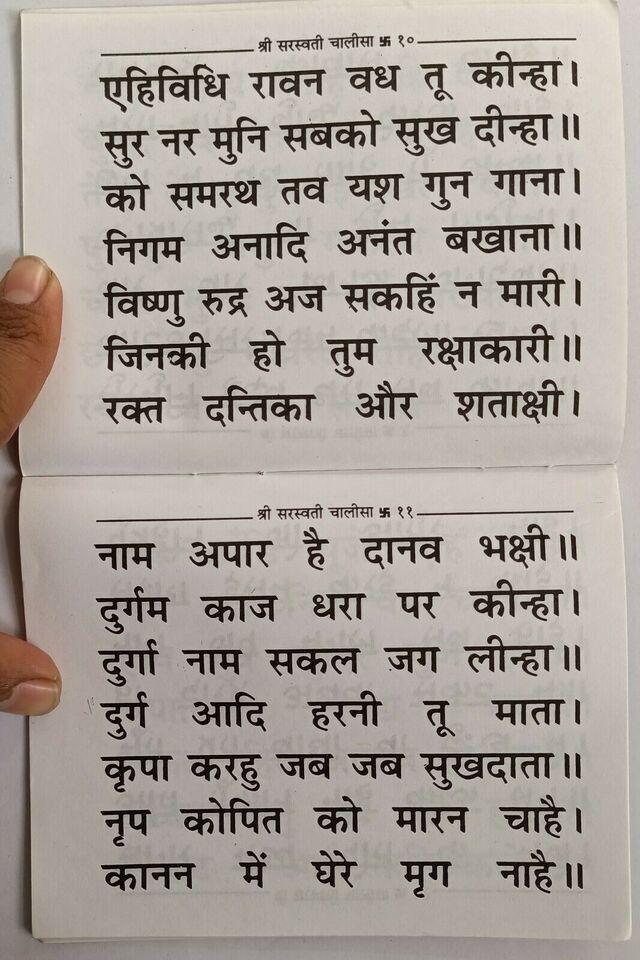 श्री सरस्वती चालीसा 卐 १०
एहिविधि रावन वध तू कीन्हा।
सुर नर मुनि सबको सुख दीन्हा॥
को समरथ तव यश गुन गाना।
निगम अनादि अनंत बखाना॥
विष्णु रुद्र अज सकहिं न मारी।
जिनकी हो तुम रक्षाकारी॥
रक्त दन्तिका और शताक्षी।
श्री सरस्वती चालीसा 卐 ११
नाम अपार है दानव भक्षी॥
दुर्गम काज धरा पर कीन्हा।
दुर्गा नाम सकल जग लीन्हा॥
दुर्ग आदि हरनी तू माता।
कृपा करहु जब जब सुखदाता॥
नृप कोपित को मारन चाहै।
कानन में घेरे मृग नाहै॥